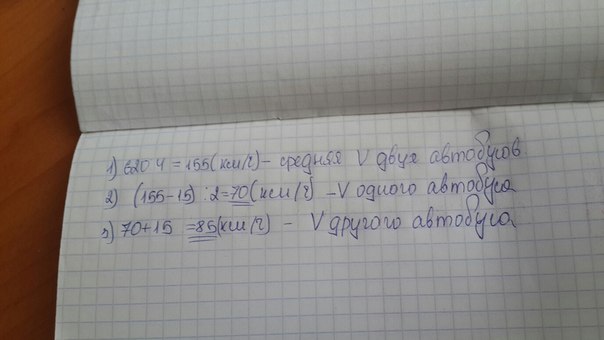 1) 620 4 = 155 (км/ч) – средняя V двух автобусов
2) (155-15) :2=70 (км/ч) – V одного автобуса
3) 70+15 =85(км/ч) – V другого автобуса